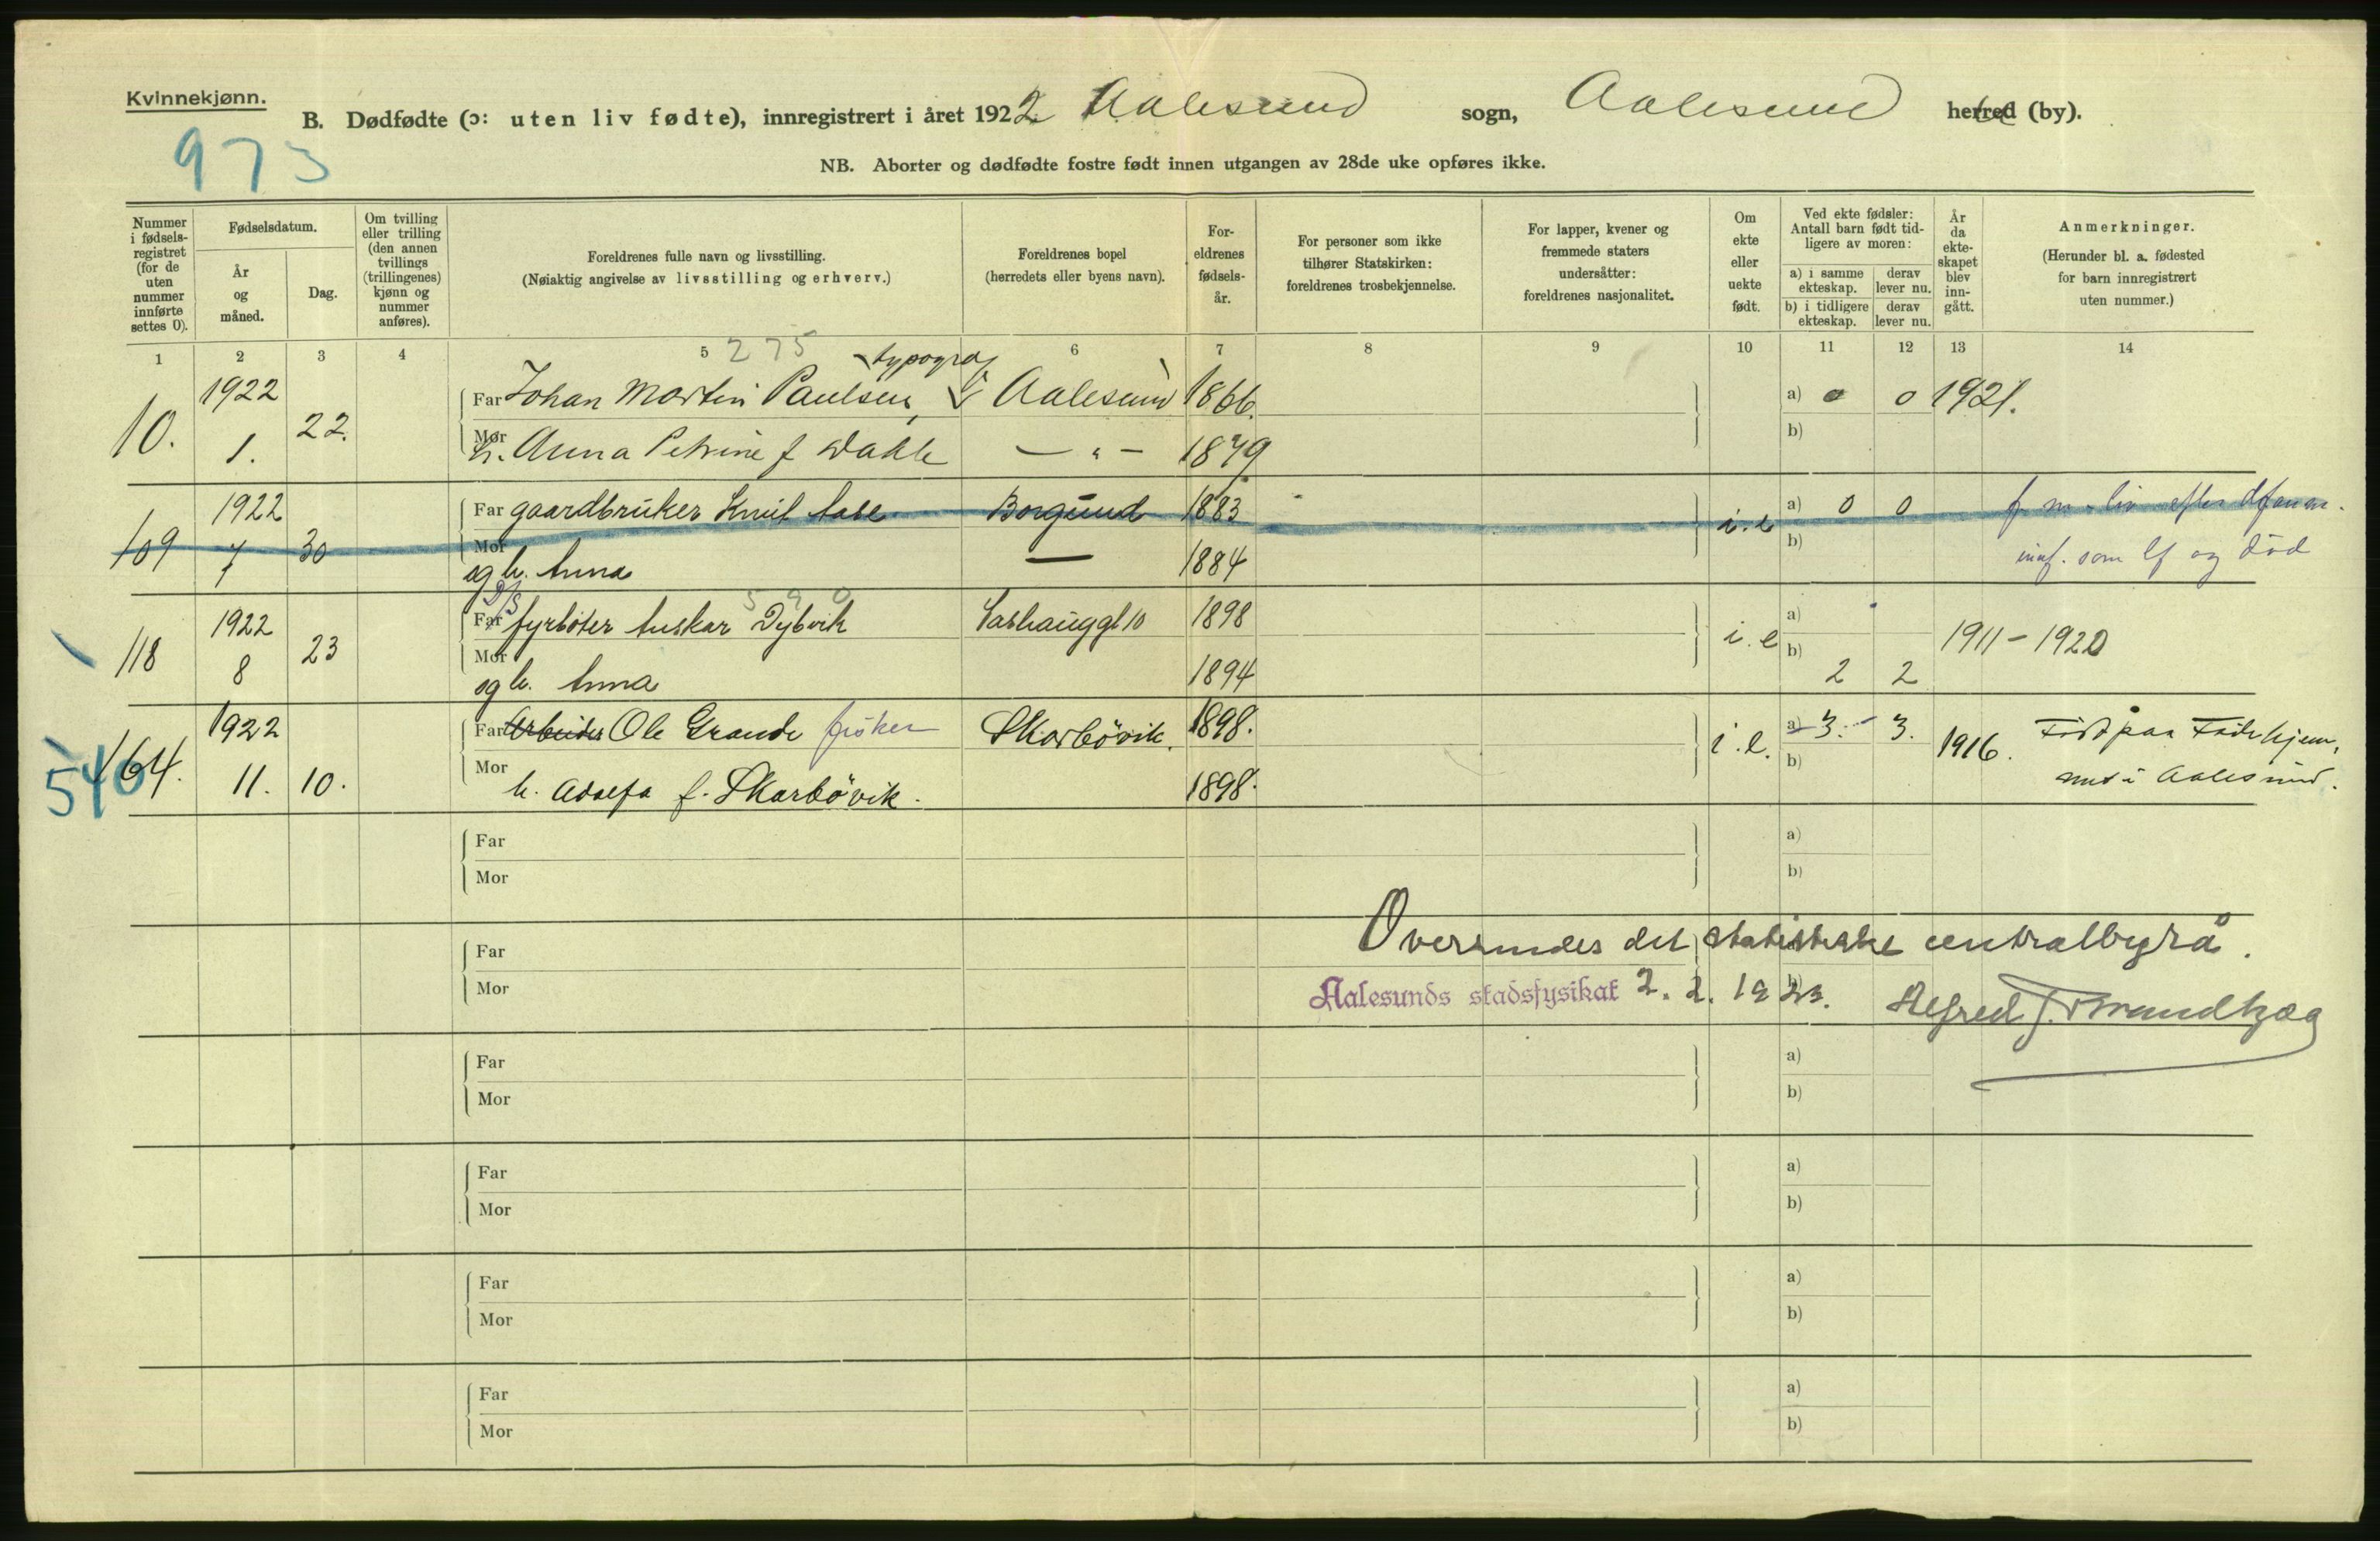 Kvinnekjønn.
B. Dødfødte (ɔ: uten liv fødte), innregistrert i året 1922 Aalesund sogn, Aalesund herred (by).
973
NB. Aborter og dødfødte fostre født innen utgangen av 28de uke opføres ikke.
Nummer i fødsels-registret (for de uten nummer innførte settes 0).
Fødselsdatum.
År og måned.
Dag.
Om tvilling eller trilling (den annen tvillings (trillingenes) kjønn og nummer anføres).
Foreldrenes fulle navn og livsstilling.
(Nøiaktig angivelse av livsstilling og erhverv.)
Foreldrenes bopel
(herredets eller byens navn).
For-eldrenes fødsels-år.
For personer som ikke tilhører Statskirken: foreldrenes trosbekjennelse.
For lapper, kvener og fremmede staters undersåtter: foreldrenes nasjonalitet.
Om ekte eller uekte født.
Ved ekte fødsler: Antall barn født tid-ligere av moren:
a) i samme ekteskap.
derav lever nu.
b) i tidligere ekteskap.
derav lever nu.
År da ekte-skapet blev inn-gått.
Anmerkninger.
(Herunder bl. a. fødested for barn innregistrert uten nummer.)
1 2 3 4 5 275 6 7 8 9 10 11 12 13 14
typograf
10. 1922 1. 22. Far Johan Martin Paulsen, Aalesund 1866. a) 0 0 1921.
Mor h. Anna Petrine f Dahle — " — 1879 b)
109 1922 7 30 Far gaardbruker Knut Aase Borgund 1883 i.e a) 0 0
Mor og h. Anna — 1884 b) innf. som lf og død
590
118 1922 8 23 Far D/S fyrbøter Anskar Dybvik 10 1898 i.e a)
Mor og h. Anna 1894 b) 2 2 1911-1920
540
164. 1922 11. 10. Far Arbeider Ole Grande fisker Skarbövik. 1898. i.e. a) 3. 3. 1916. Född paa Födehjem,
Mor h. Adolfa f. Skarbövik. 1898. b) met i Aalesund.
Far a)
Mor b)
Oversendes det statistiske centralbyrå.
Far
Mor b)
Aalesunds stadsfysikat 2. 2. 1923. Alfred J. Brandtzæg
Far a)
Mor b)
Far a)
Mor b)
Far a)
Mor b)
Far a)
Mor b)